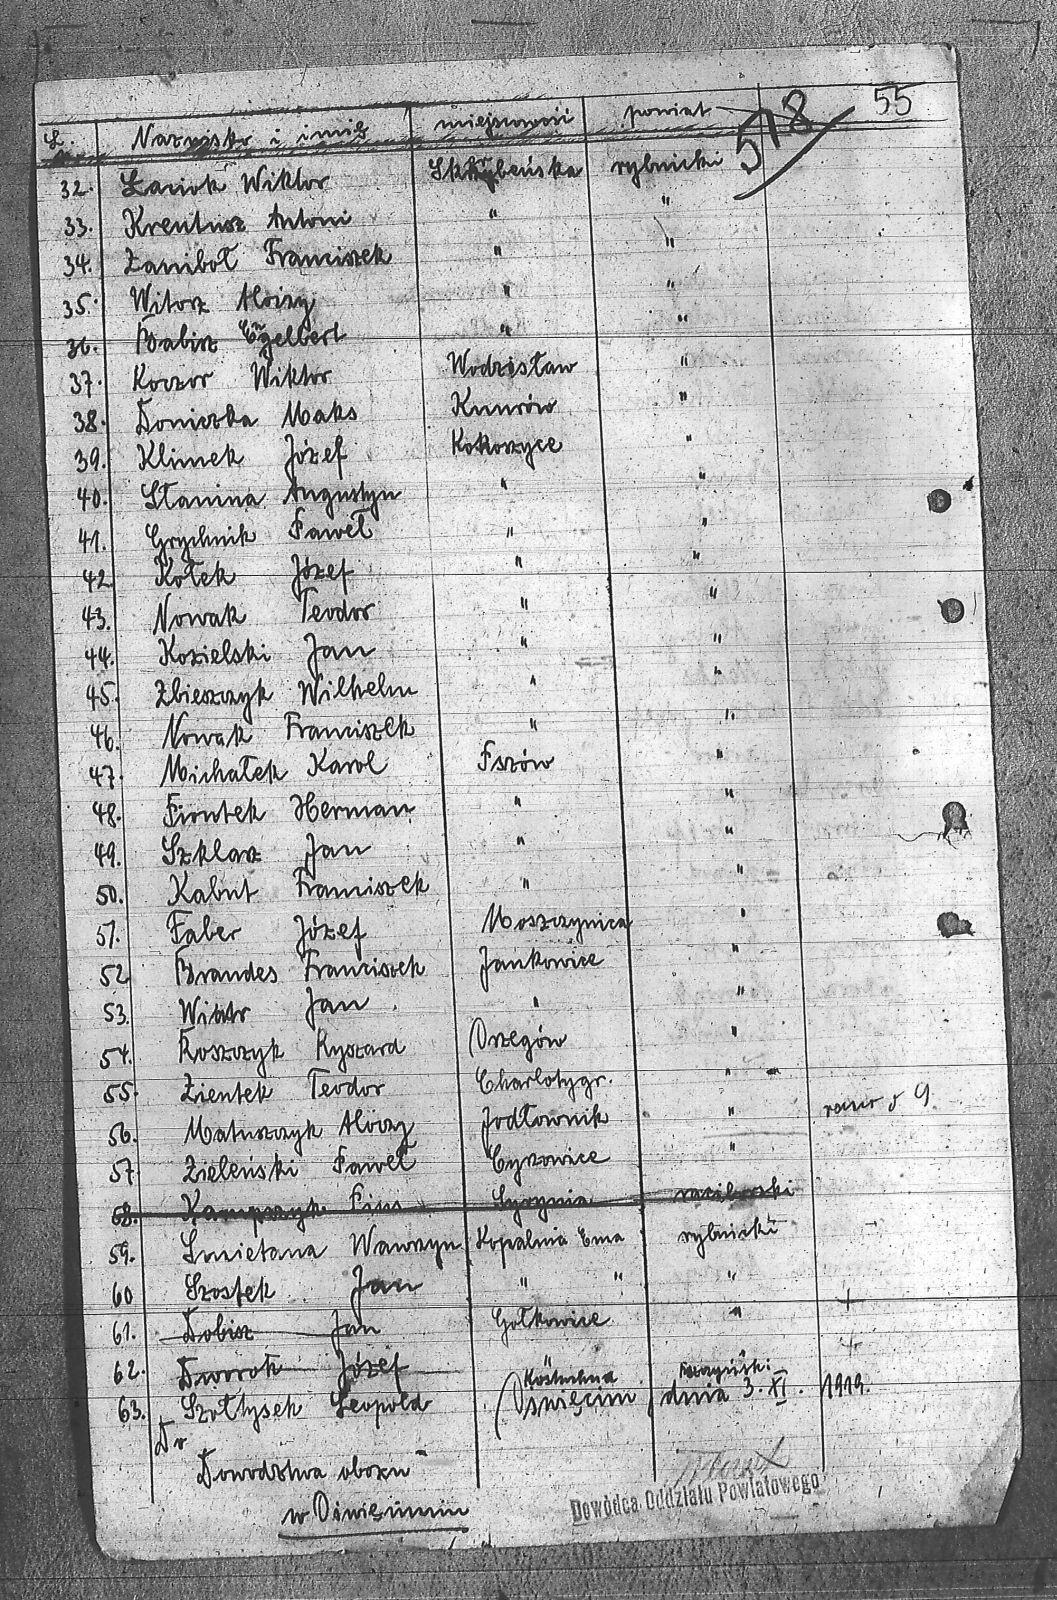 55
578
L. Nazwisko i imię miejscowość powiat
32. Łaciok Wiktor Skrbeńska rybnicki
33. Kreutusz Antoni " "
34. Zaniboł Franciszek " "
35. Witosz Aloizy " "
36. Babisz Engelbert " "
37. Koczor Wiktor Wodzisław "
38. Doniczka Maks Knurów "
39. Klimek Józef Kokoszyce "
40. Stanina Augustyn " "
41. Grychnik Paweł " "
42. Kołek Józef " "
43. Nowak Teodor " "
44. Kozielski Jan " "
45. Zbieszczyk Wilhelm " "
46. Nowak Franciszek " "
47. Michałek Karol Pszów "
48. Piontek Herman " "
49. Szklarz Jan " "
50. Kabut Franciszek " "
51. Faber Józef Moszczynica "
52. Brandes Franciszek Jankowice "
53. Jan " "
54. Roszczyk Ryszard Orzegów "
55. Zientek Teodor Charlotygr. "
56. Matuszczyk Aloizy Jodłownik " 9.
57. Zieleński Paweł Cyrzowice "
58. Pius Syrynia raciborski
59. Smietana Wawrzyn Kopalnia Ema rybnicki
60 Szostek Jan " " "
61. Dobisz Jan Gołkowice "
62. Dworok Józef
63. Szołtysek Leopold Kostuchna
Oświęcim dnia 3. XI. 1919.
Do
Dowództwa obozu
w Oświęcimiu
Dowódca Oddziału Powiatowego